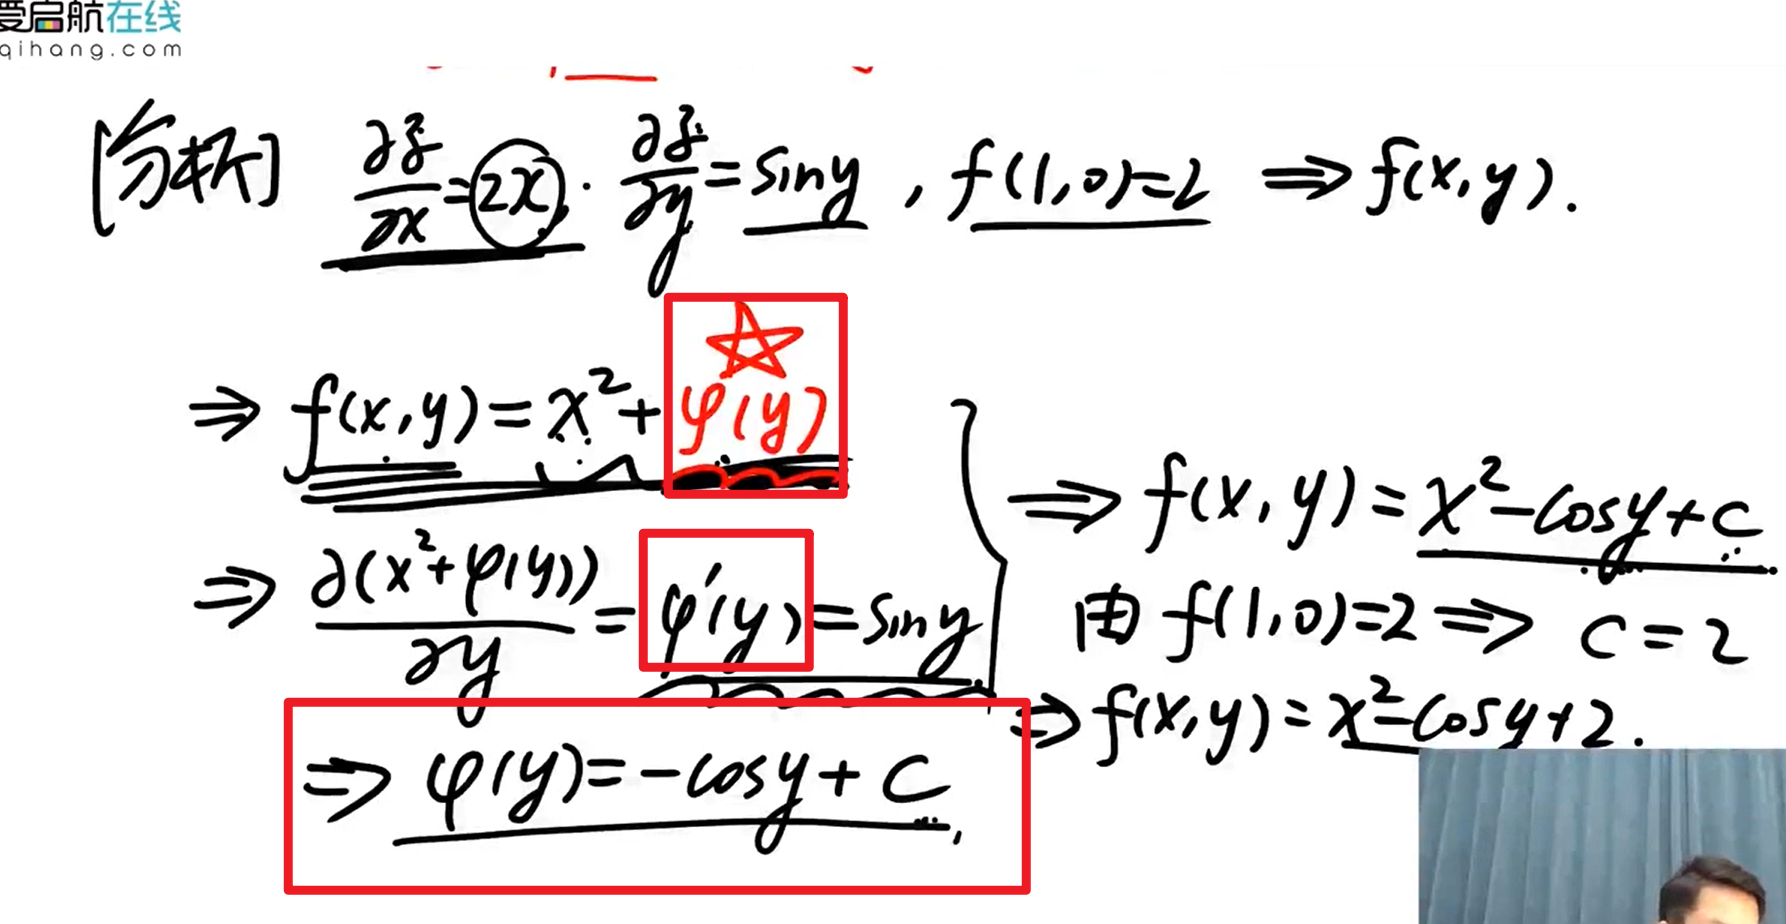 爱启航在线
qihang.com
[分析] ∂z/∂x = 2x, ∂z/∂y = siny, f(1,0)=2 ⇒ f(x,y).
⇒ f(x,y) = x² + φ(y)
⇒ ∂(x²+φ(y))/∂y = φ'(y) = siny
⇒ φ(y) = -cosy + C
⇒ f(x,y) = x²-cosy+C
由 f(1,0)=2 ⇒ C=2
⇒ f(x,y) = x²-cosy+2.